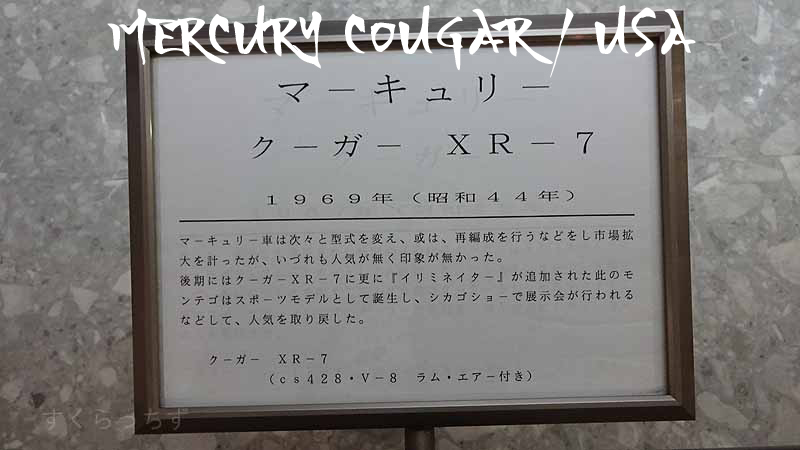 MERCURY COUGAR / USA
マーキュリー
クーガー XR-7
1969年(昭和44年)
マーキュリー車は次々と型式を変え、或は、再編成を行うなどをし市場拡
大を計ったが、いづれも人気が無く印象が無かった。
後期にはクーガーXR-7に更に『イリミネイター』が追加された此のモ
ンテゴはスポーツモデルとして誕生し、シカゴショーで展示会が行われる
などして、人気を取り戻した。
クーガー XR-7
(cs428・V-8 ラム・エアー付き)
すくらっちず